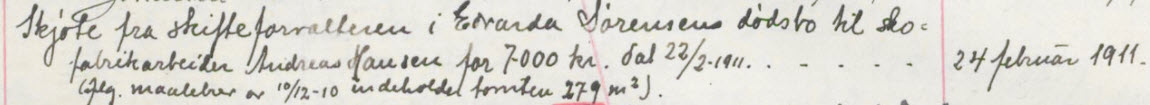 Skjøte fra skifteforvalteren i Edvarda Sørensens dødsbo til sko=
fabrikarbeider Andreas Hansen for 7000 kr. dat 22/2-1911. . - - - - - 24 februar 1911.
(iflg. maalebrev av 10/12-10 indeholder tomten 279 m²).